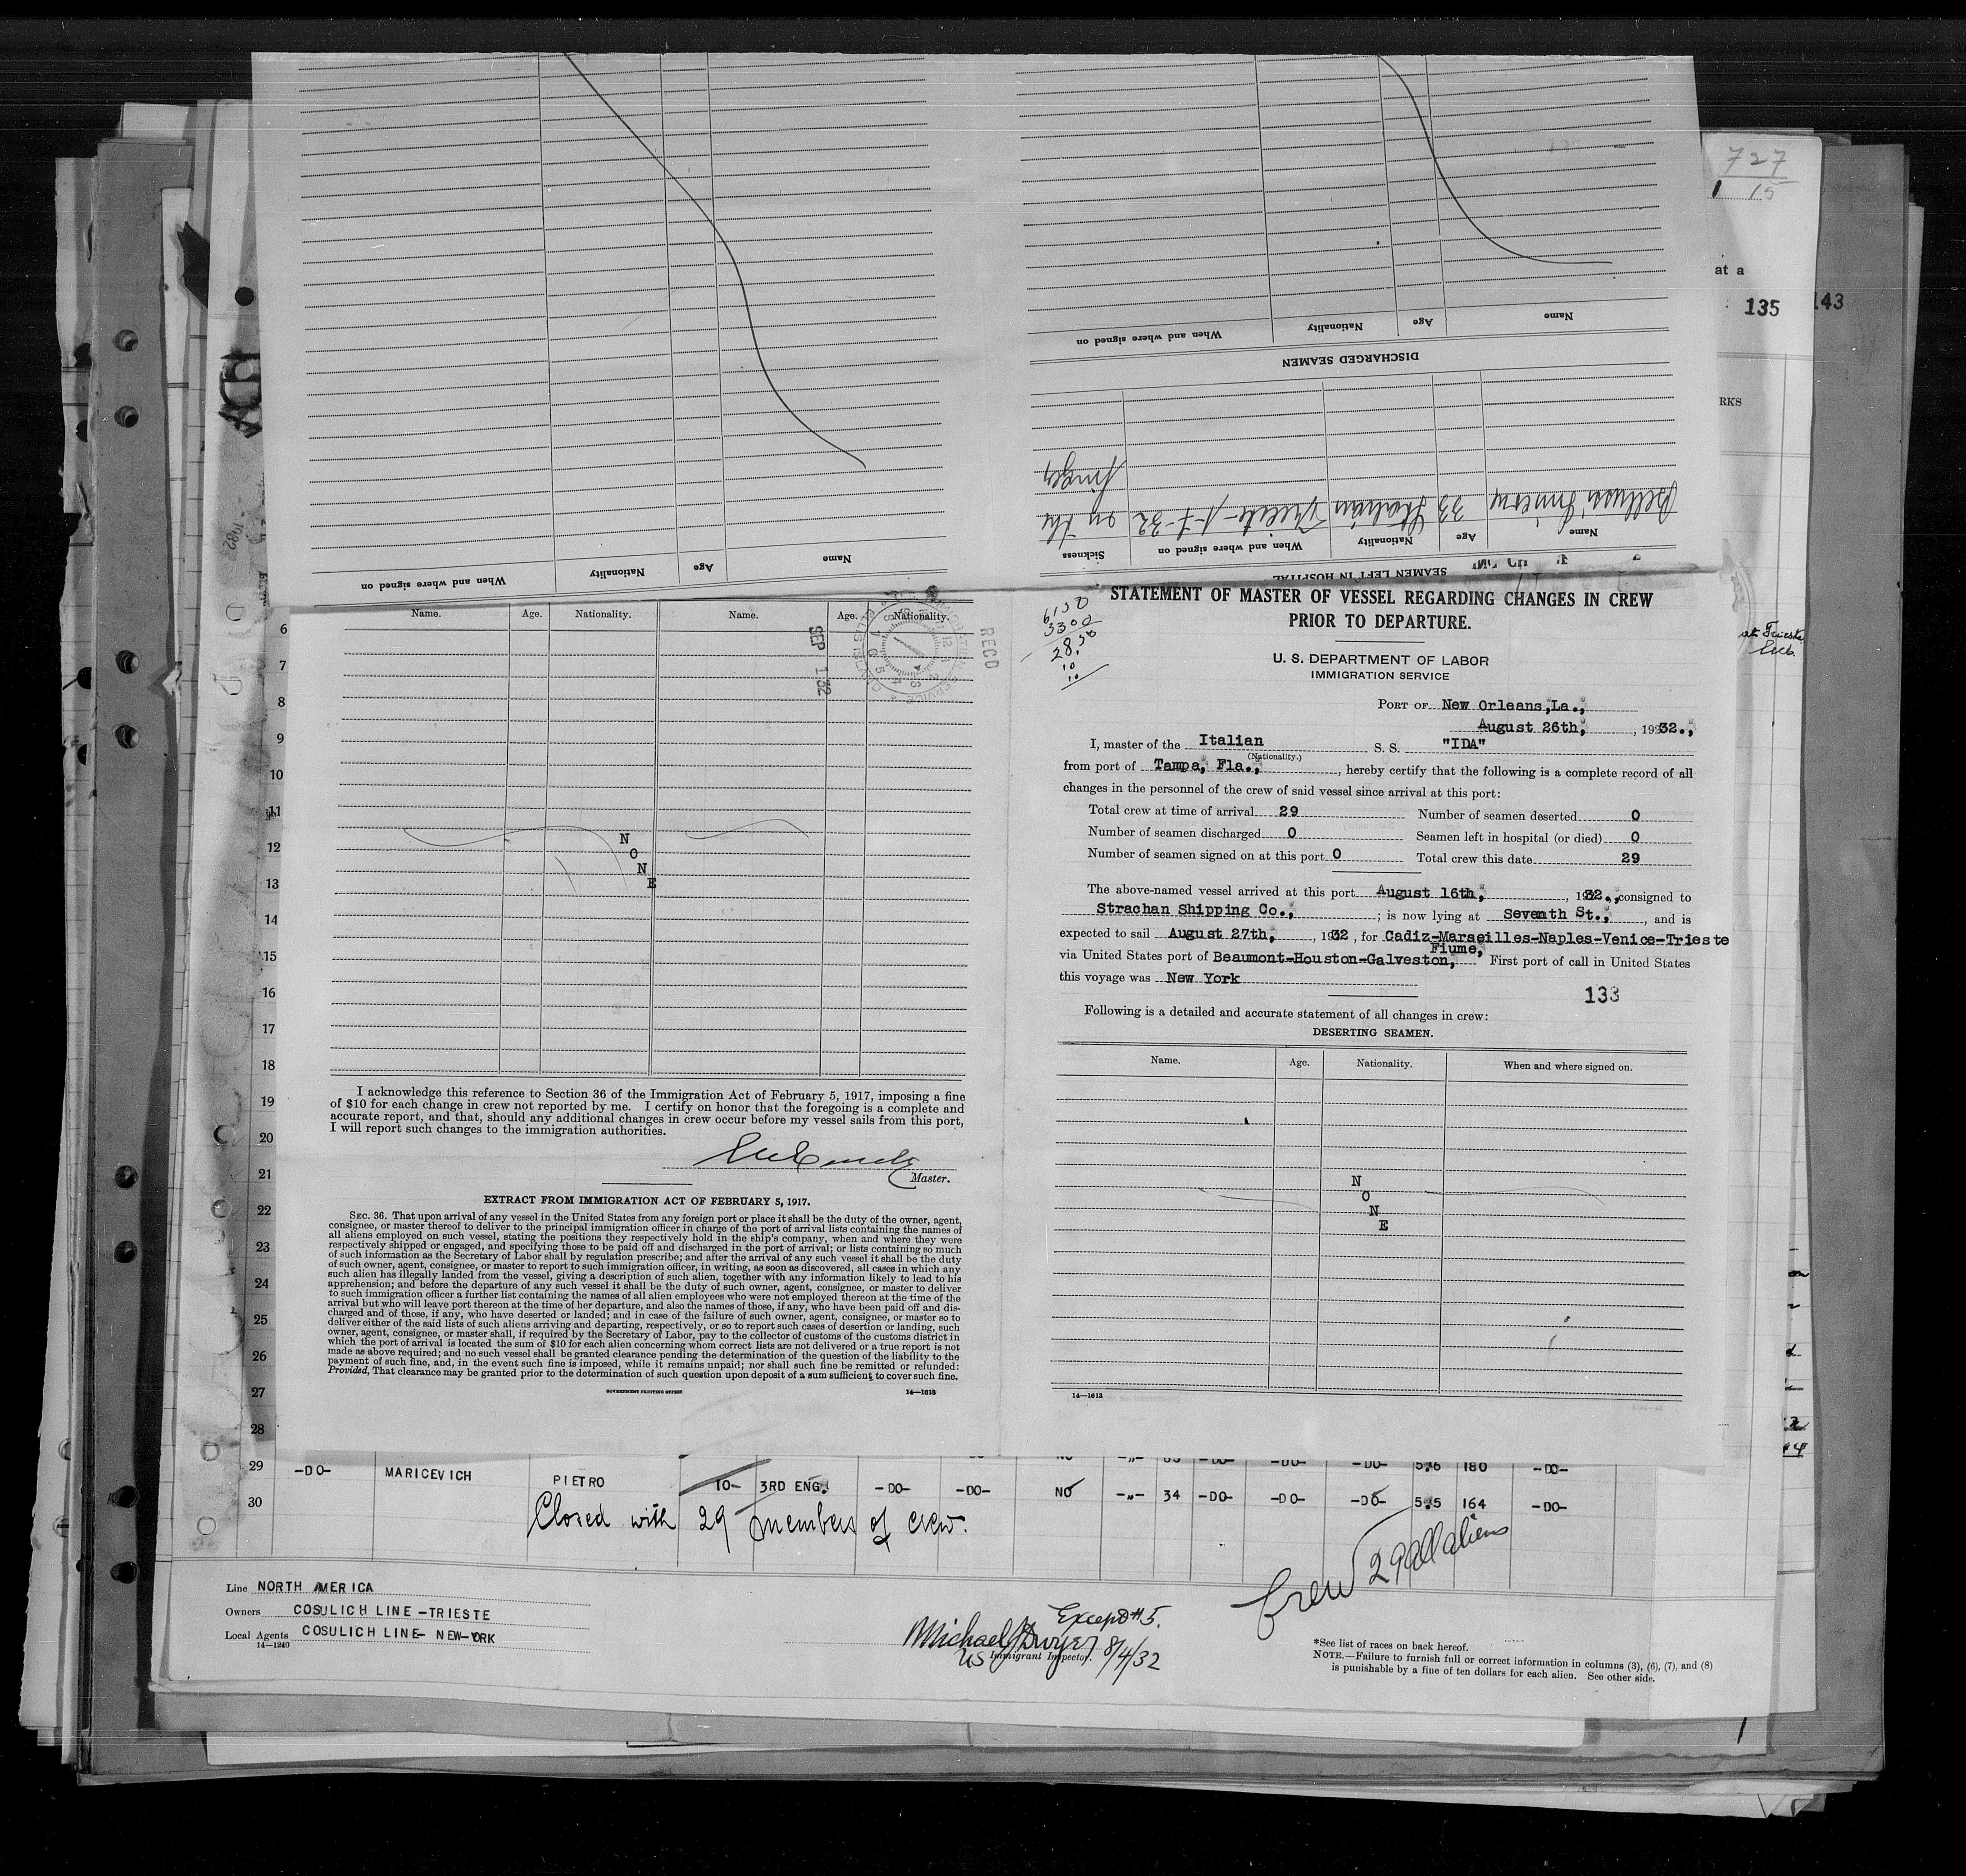 727
15
at a
135
143
RKS
When and where signed on
Nationality
Age
Name
DISCHARGED SEAMEN
33 Italian
on the
Name
Age
Nationality
When and where signed on
Sickness
SEAMEN LEFT IN HOSPITAL
Name
Age
Nationality
When and where signed on
Name. Age. Nationality. Name. Age. Nationality.
SEP 1 32
RECD
6
7
8
9
10
11
12
13
14
15
16
17
18
19
20
21
22
23
24
25
26
27
28
N
O
N
E
I acknowledge this reference to Section 36 of the Immigration Act of February 5, 1917, imposing a fine
of $10 for each change in crew not reported by me. I certify on honor that the foregoing is a complete and
accurate report, and that, should any additional changes in crew occur before my vessel sails from this port,
I will report such changes to the immigration authorities.
Master.
EXTRACT FROM IMMIGRATION ACT OF FEBRUARY 5, 1917.
SEC. 36. That upon arrival of any vessel in the United States from any foreign port or place it shall be the duty of the owner, agent,
consignee, or master thereof to deliver to the principal immigration officer in charge of the port of arrival lists containing the names of
all aliens employed on such vessel, stating the positions they respectively hold in the ship's company, when and where they were
respectively shipped or engaged, and specifying those to be paid off and discharged in the port of arrival; or lists containing so much
of such information as the Secretary of Labor shall by regulation prescribe; and after the arrival of any such vessel it shall be the duty
of such owner, agent, consignee, or master to report to such immigration officer, in writing, as soon as discovered, all cases in which any
such alien has illegally landed from the vessel, giving a description of such alien, together with any information likely to lead to his
apprehension; and before the departure of any such vessel it shall be the duty of such owner, agent, consignee, or master to deliver
to such immigration officer a further list containing the names of all alien employees who were not employed thereon at the time of the
arrival but who will leave port thereon at the time of her departure, and also the names of those, if any, who have been paid off and dis-
charged and of those, if any, who have deserted or landed; and in case of the failure of such owner, agent, consignee, or master so to
deliver either of the said lists of such aliens arriving and departing, respectively, or so to report such cases of desertion or landing, such
owner, agent, consignee, or master shall, if required by the Secretary of Labor, pay to the collector of customs of the customs district in
which the port of arrival is located the sum of $10 for each alien concerning whom correct lists are not delivered or a true report is not
made as above required; and no such vessel shall be granted clearance pending the determination of the question of the liability to the
payment of such fine, and, in the event such fine is imposed, while it remains unpaid; nor shall such fine be remitted or refunded:
Provided, That clearance may be granted prior to the determination of such question upon deposit of a sum sufficient to cover such fine.
GOVERNMENT PRINTING OFFICE 14—1613
STATEMENT OF MASTER OF VESSEL REGARDING CHANGES IN CREW
PRIOR TO DEPARTURE.
U. S. DEPARTMENT OF LABOR
IMMIGRATION SERVICE
PORT OF New Orleans, La.,
August 26th, , 1932.,
I, master of the Italian S. S. "IDA"
(Nationality.)
from port of Tampa, Fla., , hereby certify that the following is a complete record of all
changes in the personnel of the crew of said vessel since arrival at this port:
Total crew at time of arrival 29 Number of seamen deserted 0
Number of seamen discharged 0 Seamen left in hospital (or died) 0
Number of seamen signed on at this port 0 Total crew this date 29
The above-named vessel arrived at this port August 16th, , 1932., consigned to
Strachan Shipping Co., ; is now lying at Seventh St., , and is
expected to sail August 27th, , 1932, for Cadiz-Marseilles-Naples-Venice-Trieste
Fiume,
via United States port of Beaumont-Houston-Galveston, First port of call in United States
this voyage was New York
133
Following is a detailed and accurate statement of all changes in crew:
DESERTING SEAMEN.
Name. Age. Nationality. When and where signed on.
N
O
N
E
14—1613
29 -DO- MARICEVICH PIETRO 10- 3RD ENG. -DO- -DO- NO -"- 34 -DO- -DO- -DO- 5.5 164 -DO-
5.6 180 -DO-
30
Closed with 29 members of crew.
Crew 29 all aliens
Line NORTH AMERICA
Owners COSULICH LINE -TRIESTE
Local Agents COSULICH LINE- NEW-YORK
14—1240
Except #5.
Michael J Dwyer 8/4/32
US Immigrant Inspector.
*See list of races on back hereof.
NOTE.—Failure to furnish full or correct information in columns (3), (6), (7), and (8)
is punishable by a fine of ten dollars for each alien. See other side.